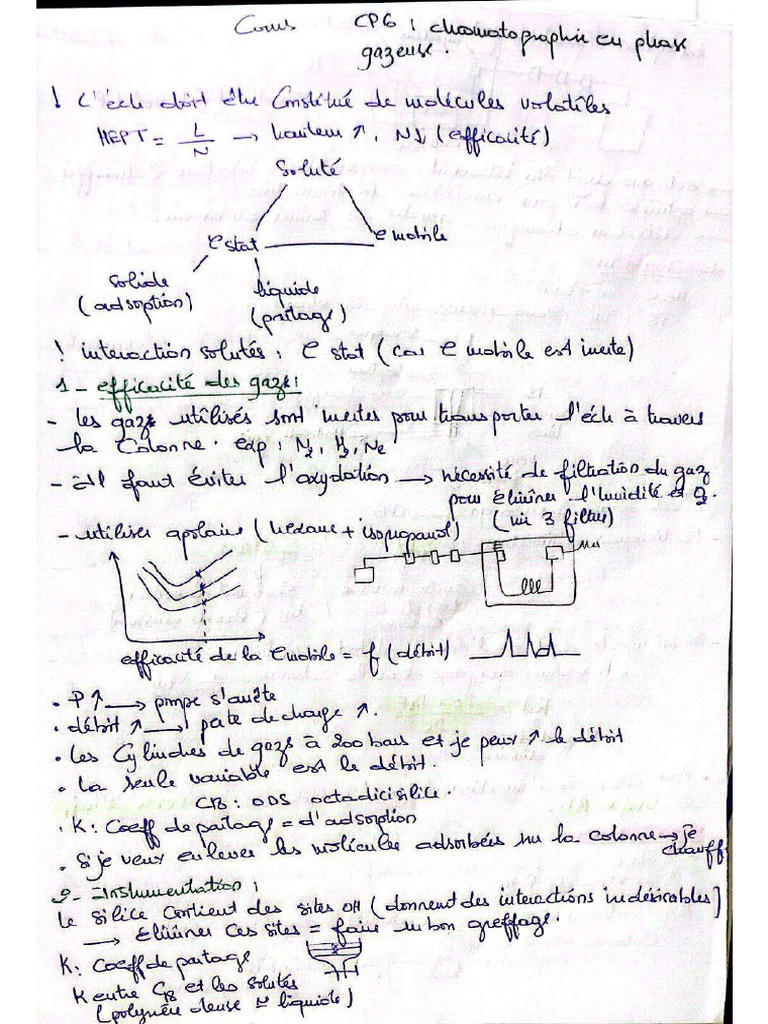 Cours CPG : chromatographie en phase
gazeuse.
! L'éch doit être Constitué de molécules volatiles
HEPT = L/N → hauteur ↑, N↓ (efficacité)
Soluté
φ stat φ mobile
solide liquide
(adsorption) (partage)
! interaction solutés : φ stat (car φ mobile est inerte)
1 - efficacité des gazs :
- les gazs utilisés sont inertes pour transporter l'éch à travers
la Colonne. exp : N2, H2, Ne
- Il faut éviter l'oxydation → nécessité de filtration du gaz
pour éliminer l'humidité et O2.
- utiliser apolaire (hexane + isopropanol) (min 3 filtres)
efficacité de la φ mobile = f (débit)
• P ↑ → pompe s'arrête
• débit ↑ → perte de charge ↑.
• les Cylindres de gazs à 200 bars et je peux ↑ le débit
• la seule variable est le débit.
C18 : ODS octadicisilice.
• K : Coeff de partage = d'adsorption
• Si je veux enlever les molécules adsorbées sur la colonne → je
chauff
2 - Instrumentation :
le silice Contient des sites OH (donnent des interactions indésirables)
→ éliminer ces sites = faire un bon greffage.
K : Coeff de partage
K entre C18 et les solutés
(polymère dense ≃ liquide)